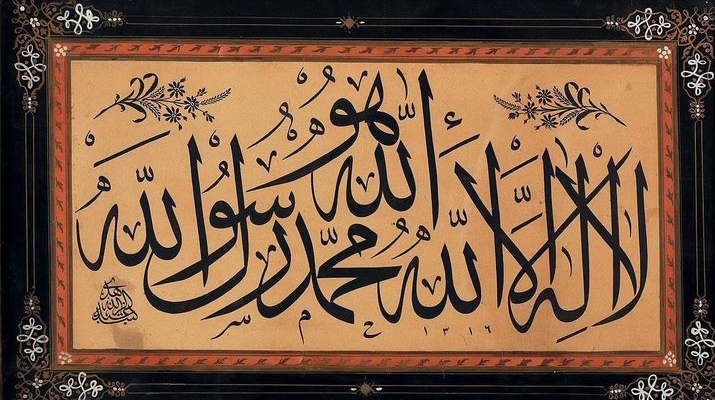 الله هو
لا إله إلا الله محمد رسول الله
١٣١٦